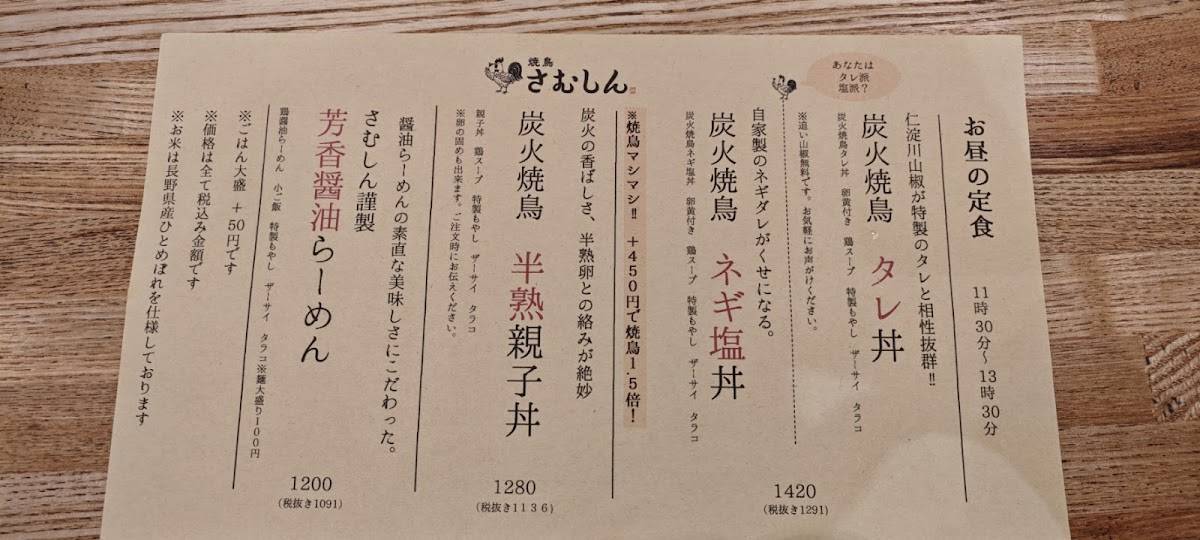 焼鳥
さむしん
お昼の定食 11時30分〜13時30分
あなたは
タレ派
塩派？
仁淀川山椒が特製のタレと相性抜群!!
炭火焼鳥 タレ丼
炭火焼鳥タレ丼 卵黄付き 鶏スープ 特製もやし ザーサイ タラコ
※追い山椒無料です。お気軽にお声がけください。
自家製のネギダレがくせになる。
炭火焼鳥 ネギ塩丼
炭火焼鳥ネギ塩丼 卵黄付き 鶏スープ 特製もやし ザーサイ タラコ
1420
(税抜き1291)
※焼鳥マシマシ!! +450円で焼鳥1.5倍!
炭火の香ばしさ、半熟卵との絡みが絶妙
炭火焼鳥 半熟親子丼
親子丼 鶏スープ 特製もやし ザーサイ タラコ
※卵の固めも出来ます。ご注文時にお伝えください。
1280
(税抜き1136)
醤油らーめんの素直な美味しさにこだわった。
さむしん謹製
芳香醤油らーめん
鶏醤油らーめん 小ご飯 特製もやし ザーサイ タラコ※麺大盛り100円
1200
(税抜き1091)
※ごはん大盛 +50円です
※価格は全て税込み金額です
※お米は長野県産ひとめぼれを仕様しております